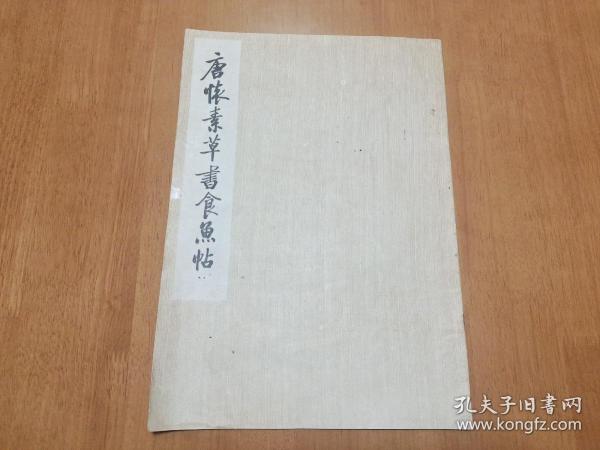 唐懐素草書食魚帖
孔夫子旧書网
www.kongfz.com